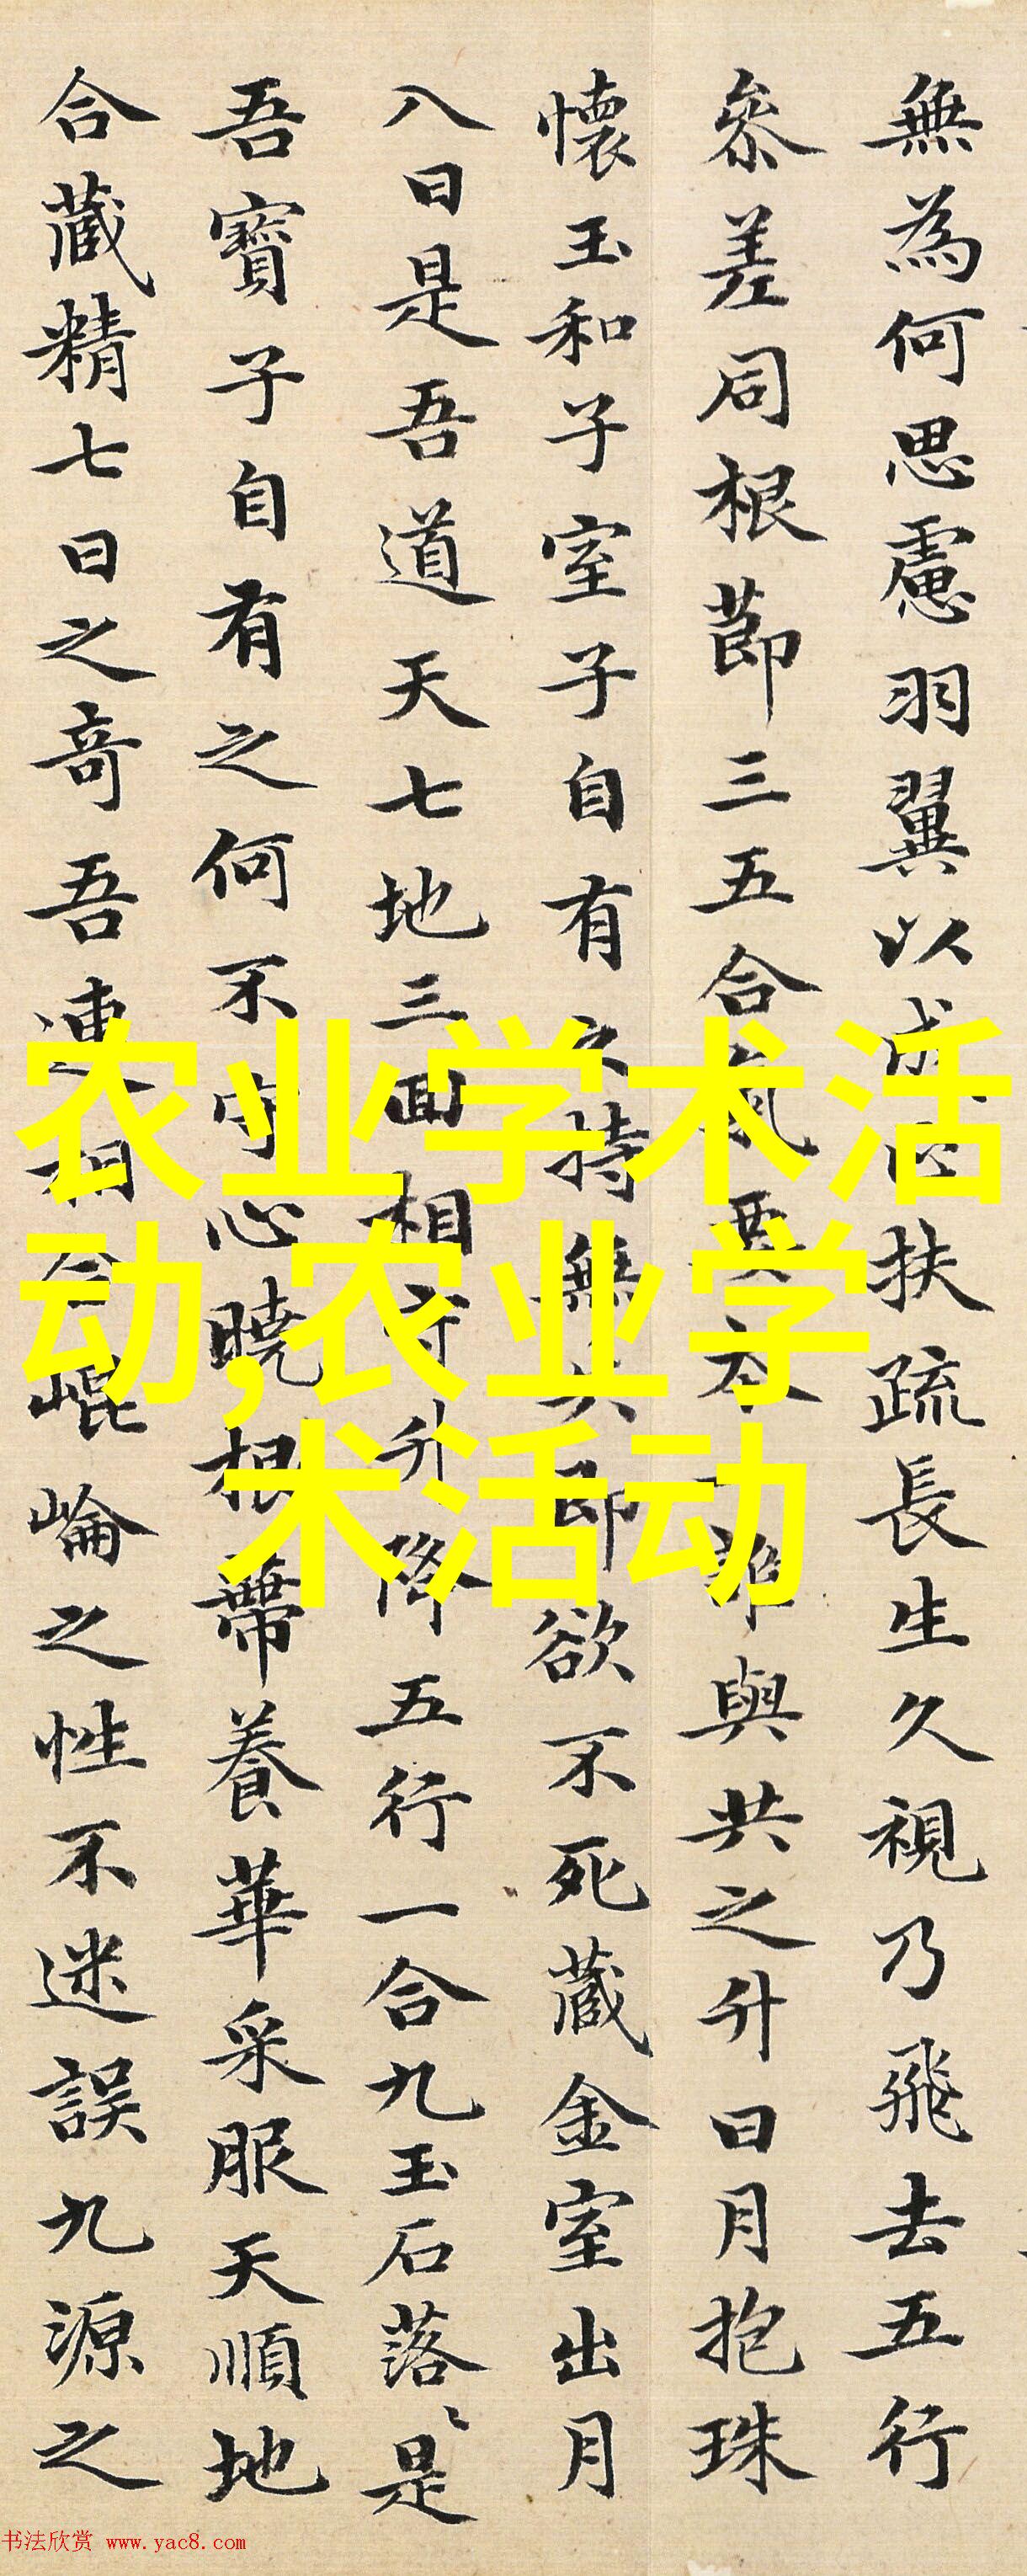 無為何思慮羽翼以成扶疏長生久視乃飛去五行
參差同根節三五合氣要本一節與共之升日月抱珠
懷玉和子室子自有之持無失即欲不死藏金室出月
入日是吾道天七地三回相守升降五行一合九玉石落〻是
吾寶子自有之何不守心曉根蔕養華采服天順地
合藏精七日之奇吾連相合崐崘之性不迷誤九源之
农业学术活
动,农业学
术活动
书法欣赏 www.yac8.com